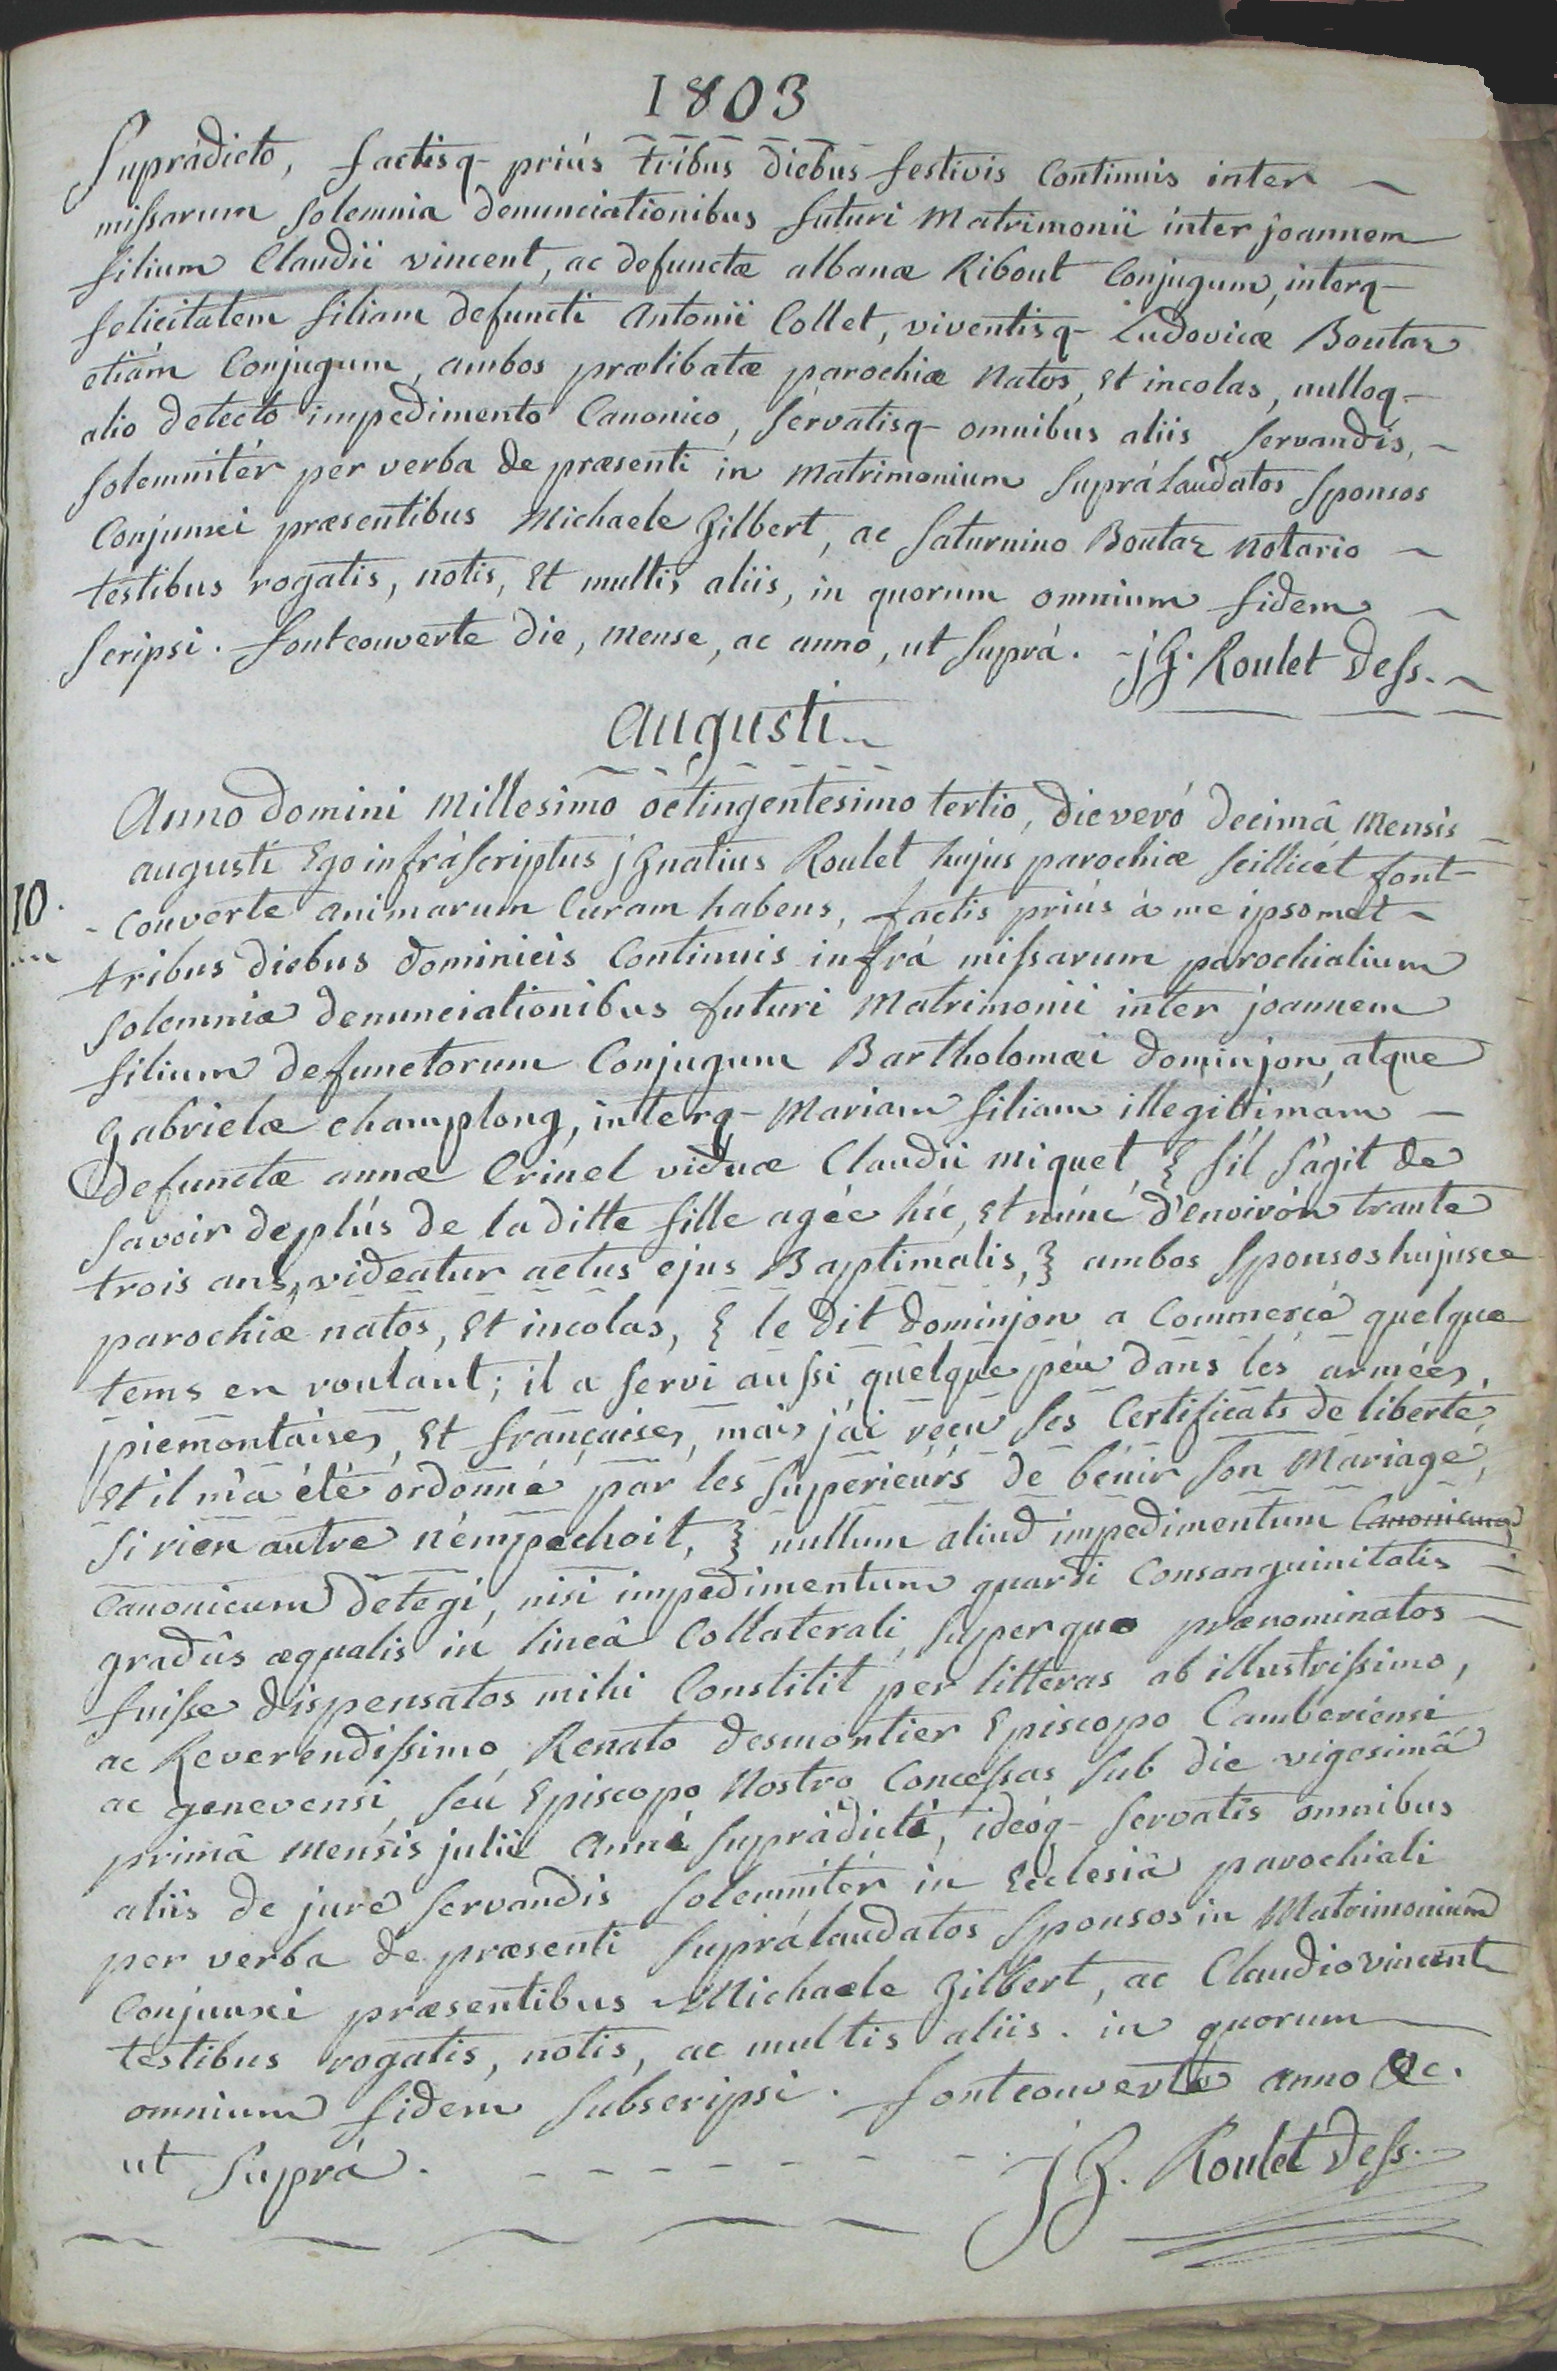 1803
Suprádicto, factisq- priús tribus diebus festivis Continuis inter
missarum solemnia denunciationibus futuri Matrimonii inter joannem
filium Claudii vincent, ac defunctæ albanæ Ribout Conjugum, interq-
felicitatem filiam defuncti Antonii Collet, viventisq- Ludovicæ Boutaz
etiám Conjugum, ambos prælibatæ parochiæ Natos, Et incolas, nulloq-
alio detecto impedimento Canonico, servatisq- omnibus aliis servandis,
solemnitér per verba de præsenti in Matrimonium supráLaudatos sponsos
Conjunxi præsentibus Michaele Gilbert, ac Saturnino Boutaz Notario
testibus rogatis, notis, Et multis aliis, in quorum omnium fidem
scripsi. fontcouverte die, mense, ac anno, ut suprá. jG. Roulet Dess.
Augusti
Anno domini Millesimo octingentesimo tertio, die veró decimâ Mensis
augusti Ego infráscriptus jGnatius Roulet hujus parochiæ scillicét font-
10.
-Couverte animarum Curam habens, factis priús á me ipsomet
tribus diebus dominicis Continuis infrá missarum parochialium
solemnia denunciationibus futuri Matrimonii inter joannem
filium defunctorum Conjugum Bartholomæi dominjon, atque
Gabrielæ champlong, interq- Mariam filiam illegitimam
defunctæ annæ Crinel viduæ Claudii miquet, { s'il s'agit de
savoir deplús de laditte fille agée híc, et núnc d'environ trante
trois ans, videatur actus ejus Baptimalis, } ambos sponsos hujusce
parochiæ natos, Et incolas, { le dit dominjon a Commercé quelque
tems en roulant; il a servi aussi quelque péu dans les armées,
piemontaises, Et françaises, mais j'ai reçu ses Certificats de liberté,
Et il m'a été ordonné par les supérieurs de bénir son Mariage,
si rien autre n'émpechoit, } nullum aliud impedimentum Canonicum
Canonicum detegi, nisi impedimentum quarti Consanguinitatis
gradûs æqualis in lineâ Collaterali, super quo prænominatos
fuisse dispensatos mihi Constitit per litteras ab illustrissimo,
ac Reverendissimo Renato desmontier Episcopo Camberiensi
ac genevensi, seú Episcopo Nostro Concessas sub die vigesimâ
primâ Mensis julii Anni suprádicti, ideóq- servatis omnibus
aliis de jure servandis solemnitér in Ecclesiâ parochiali
per verba de præsenti suprálaudatos sponsos in Matrimonium
Conjunxi præsentibus Michaele Gilbert, ac Claudio vincent
testibus rogatis, notis, ac multis aliis. in quorum
omnium fidem subscripsi. fontcouverte anno &c.
ut suprá. jG. Roulet Dess.